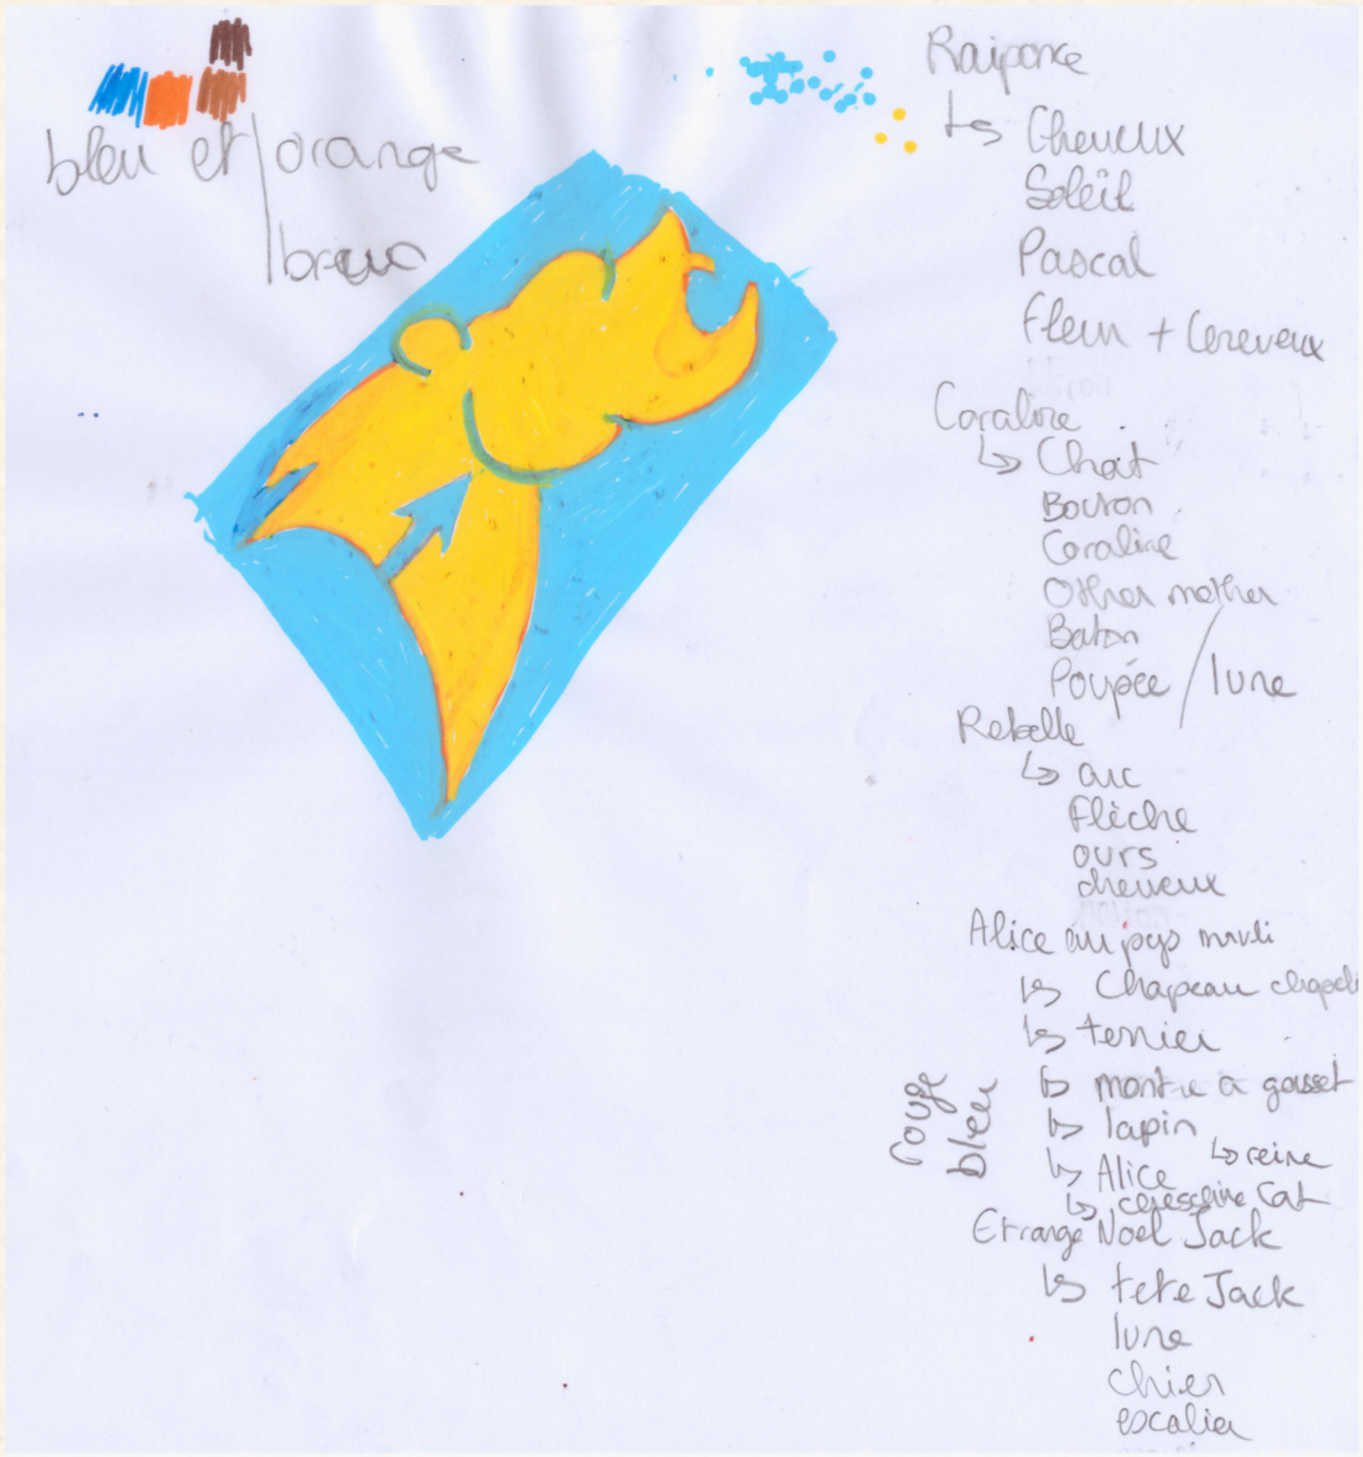 bleu et/orange
/brun
Raiponce
↳ Cheveux
Soleil
Pascal
Fleur +
Coraline
↳ Chat
Bouton
Coraline
Other mother
Baton
Poupée / lune
Rebelle
↳ arc
Flèche
ours
cheveux
Alice au pays
↳ Chapeau
↳ terrier
↳ montre à gousset
↳ lapin
↳ reine
↳ Alice
↳ Cat
rouge
bleu
Etrange Noel Jack
↳ tete Jack
lune
chien
escalier